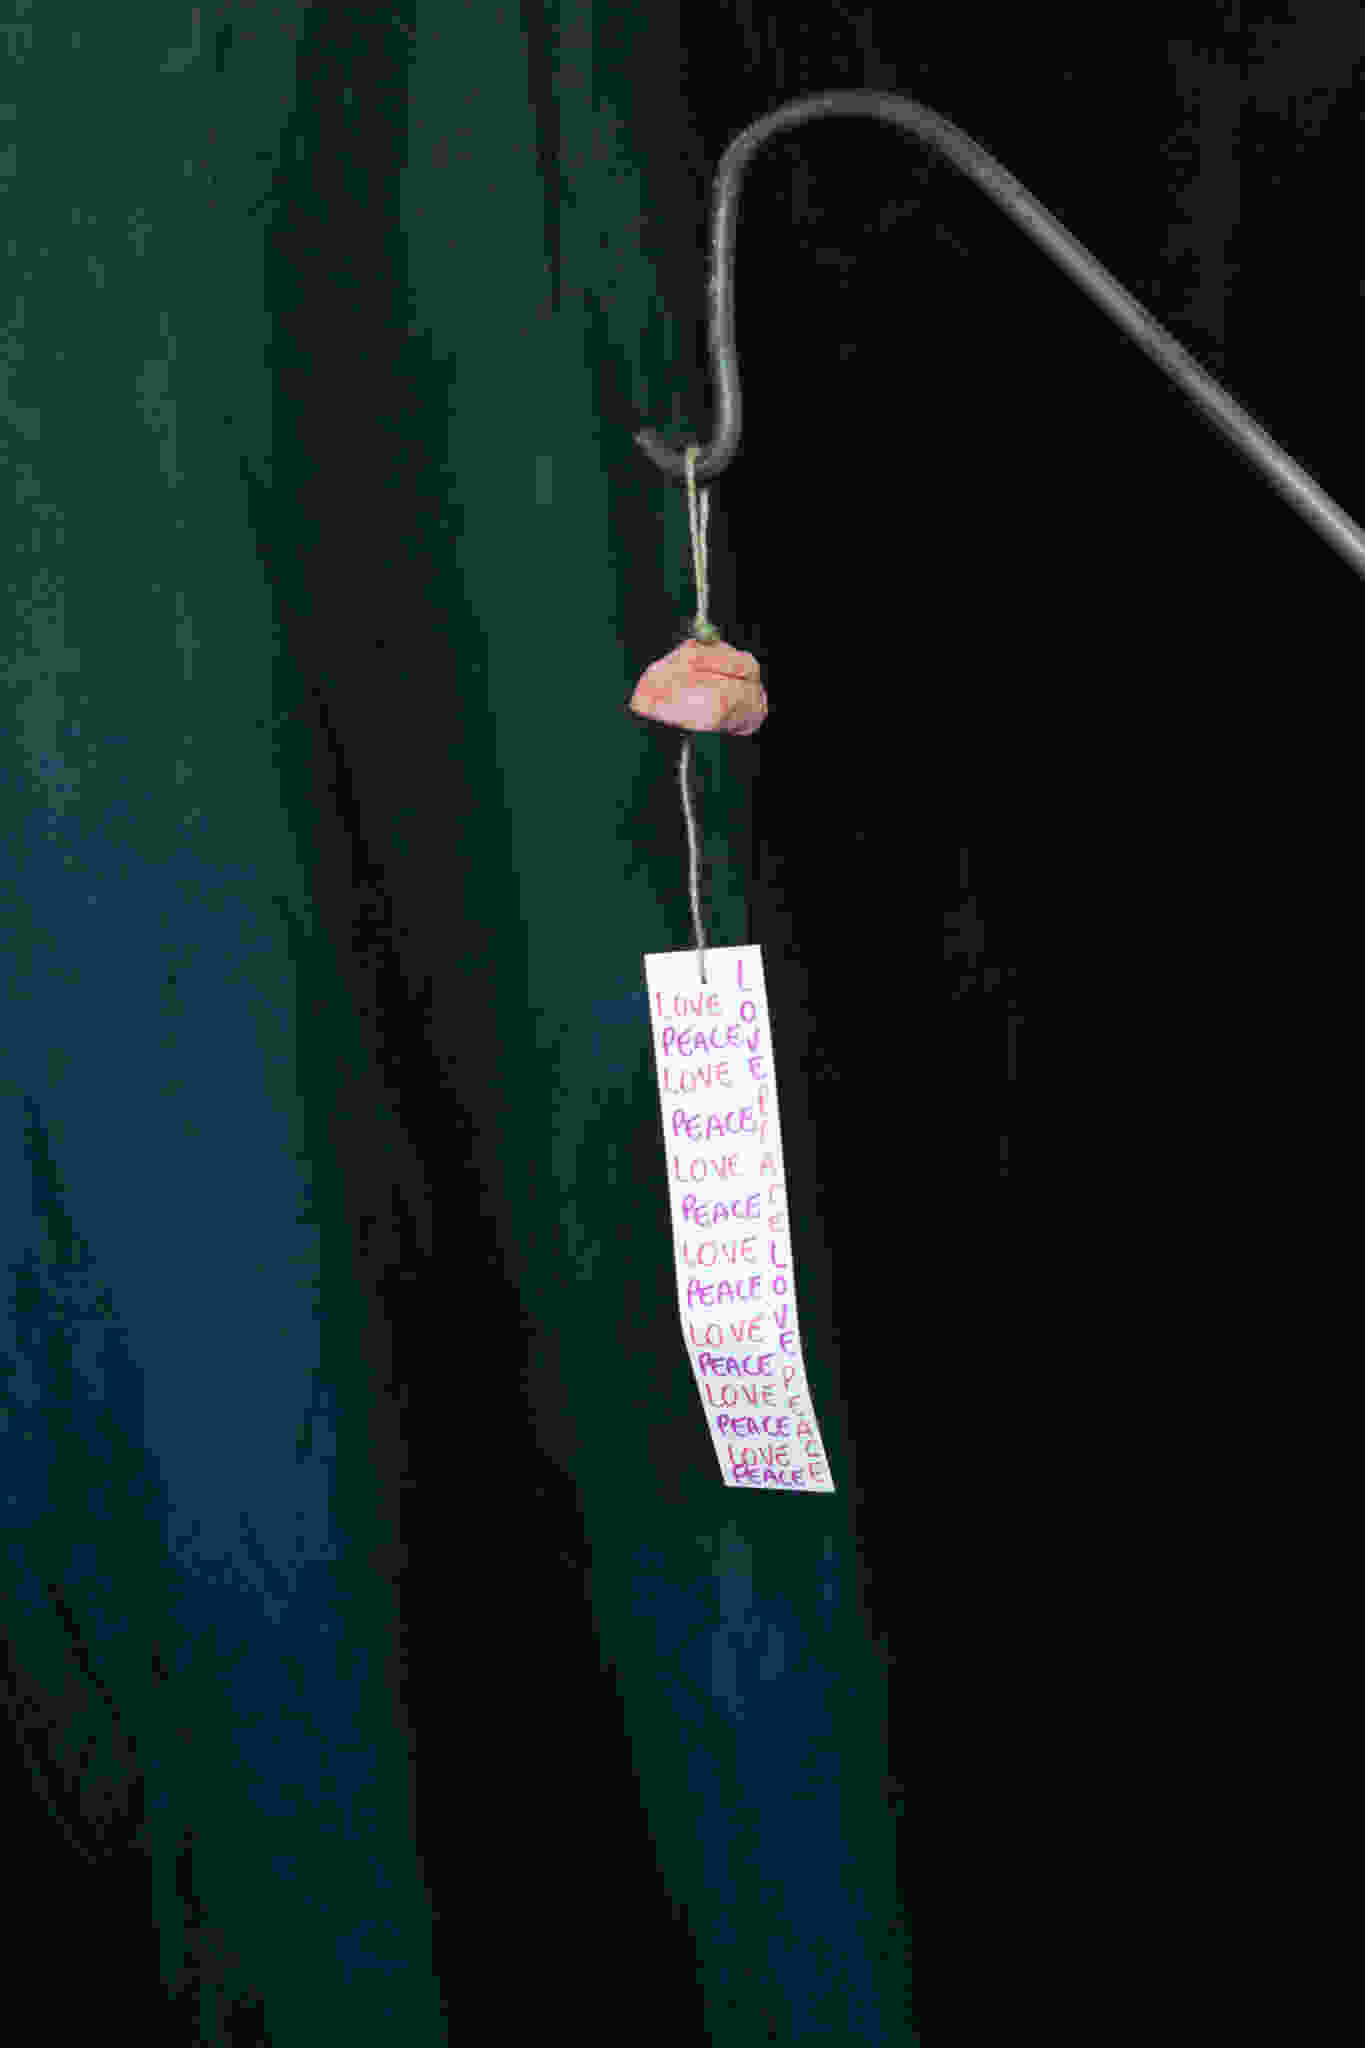 LOVE
PEACE
LOVE
PEACE
LOVE
PEACE
LOVE
PEACE
LOVE
PEACE
LOVE
PEACE
LOVE
PEACE
LOVE PEACE LOVE PEACE